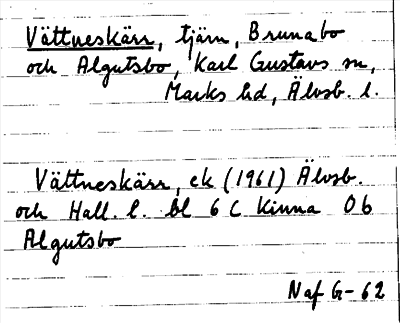 Vättneskärr, tjärn, Brunabo
och Algutsbo, Karl Gustavs sn,
Marks hd, Älvsb. l.
Vättneskärr, ek (1961) Älvsb.
och Hall. l. bl 6 C Kinna Ob
Algutsbo
Naf G-62